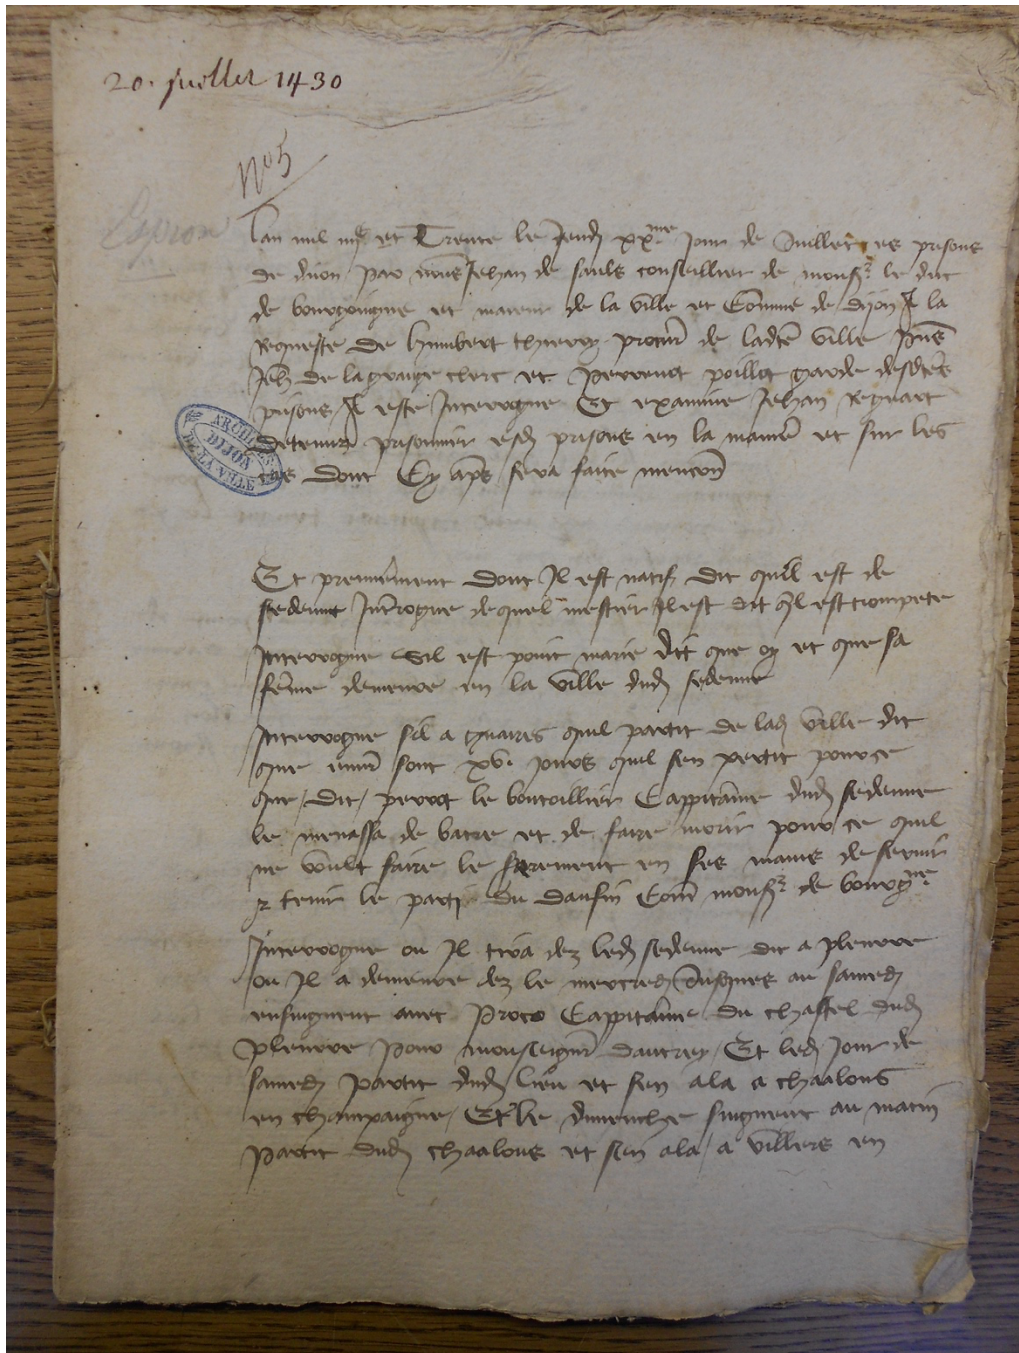 20. juillet 1430
No 5
Espion
Lan mil iiijc et Trente le Jeudj xxme jour de Juillet es prisons
de dijon par nous Jehan de saulx conseillier de monsr le duc
de bourgoingne et maieur de la ville et Commune de dijon A la
Requeste de humbert thierry procur de ladte ville pns
Jeh de la grange clerc et perrenot poillot garde desdtes
prisons A este Interrogue Et examine Jehan Regnart
detenu prisonnier esd prisons en la maniere et sur les
cas dont Cy apres sera faite mencion
ARCHIVES DE LA VILLE DIJON
Et premierement dont Il est natif dit quil est de
sedenne Interrogue de quel mestier Il est dit ql est trompete
Interrogue sil est point marie dit que oy et que sa
feme demeure en la ville dud sedenne
Interrogue sil a guaires quil partit de lad ville dit
que environ sont xv jours quil sen partit pour ce
que / dit / perrot le boutoillier Cappitaine dud sedenne
le menassa de batre et de faire morir pour ce quil
ne voult faire le serement en ses mains de servir
et tenir le parti du daufin Contre monsr de bourgne
Interrogue ou Il tira dez led sedenne dit a pleurre
ou Il a demeure dez le mercredj Jusques au samedj
ensuigvent avec proco Cappitaine du chastel dud
pleurre pour monseignr dautrey / Et led Jour de
samedj partit dud lieu et sen ala a chaalons
en champaigne / Et le dimenche suigvent au matin
partit dud chaalons et sen ala / a villers en